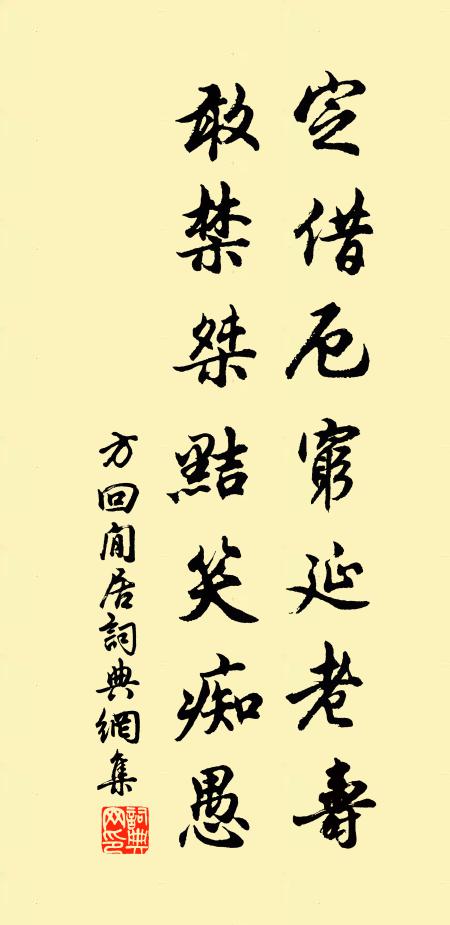 定借厄窮延老壽
敢禁桀黠笑痴愚
方回閒居詞典網集
詞典網印